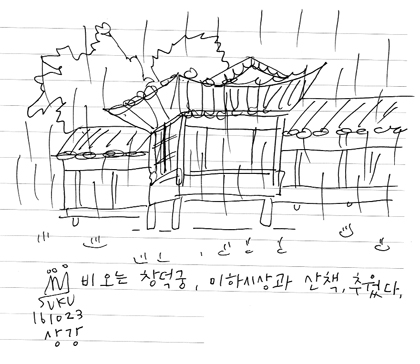 비 오는 창덕궁, 이하시상과 산책, 추웠다.
SUKU
161023
상강